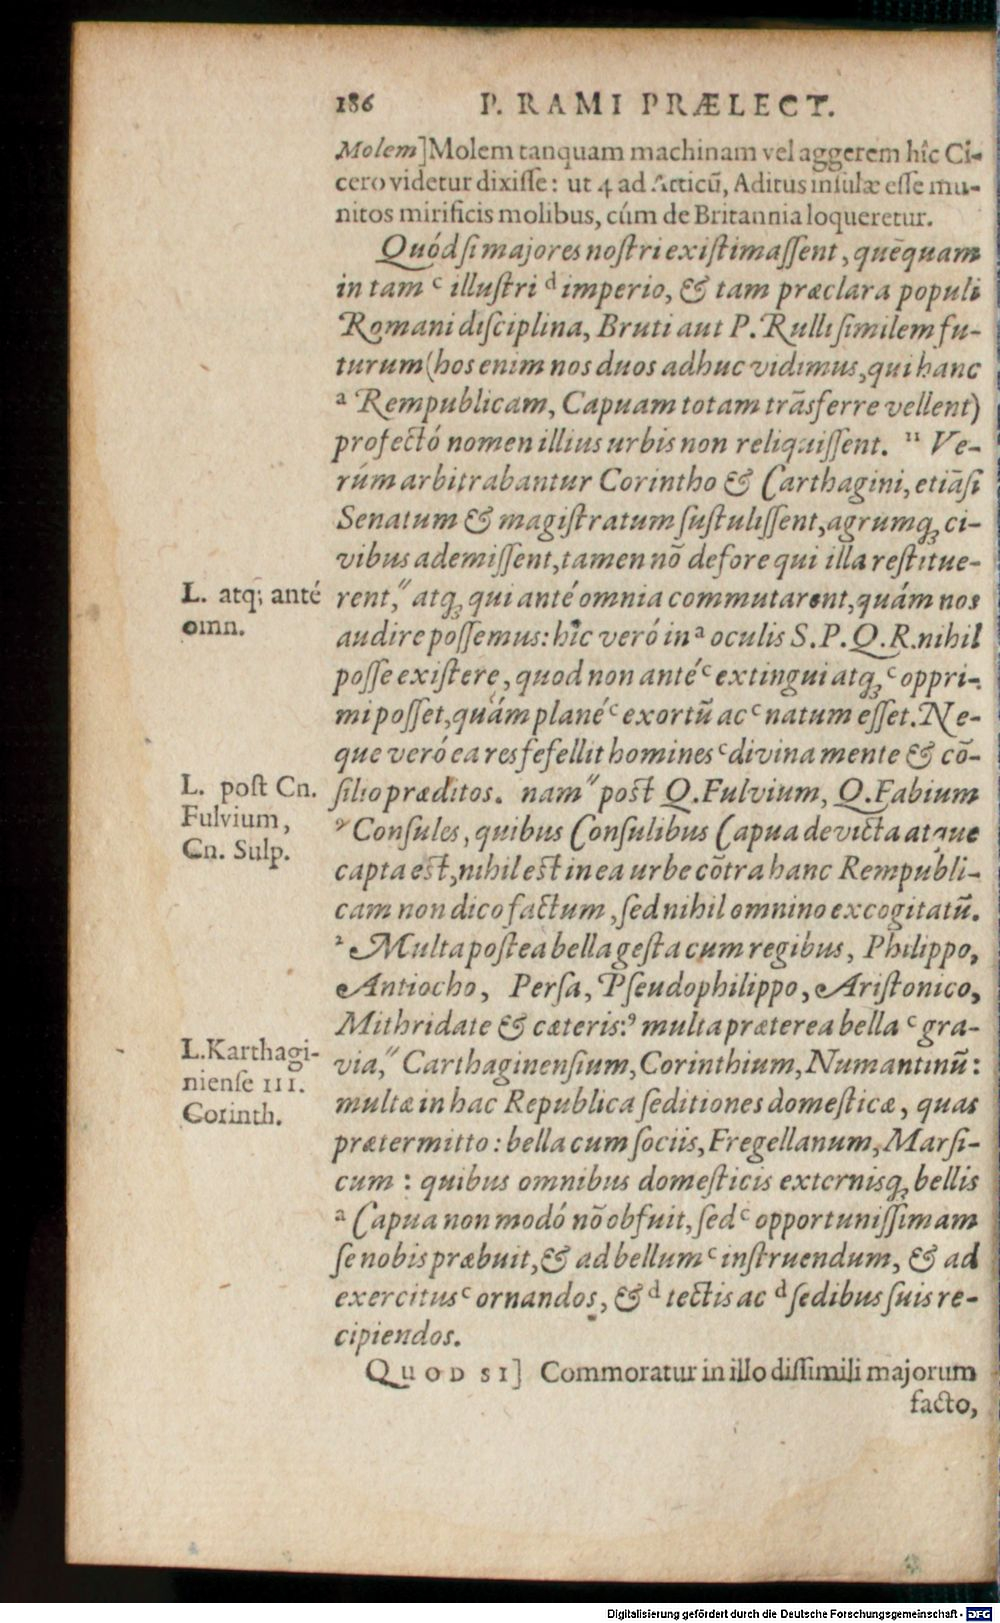 186 P. RAMI PRÆLECT.
Molem] Molem tanquam machinam vel aggerem hîc Ci-
cero videtur dixiſſe: ut 4 ad Atticū, Aditus inſulæ eſſe mu-
nitos mirificis molibus, cúm de Britannia loqueretur.
Quód ſi majores noſtri exiſtimaſſent, quēquam
in tam ᶜ illuſtri ᵈ imperio, & tam præclara populi
Romani diſciplina, Bruti aut P. Rulli ſimilem fu-
turum (hos enim nos duos adhuc vidimus, qui hanc
ᵃ Rempublicam, Capuam totam trāsferre vellent)
profectó nomen illius urbis non reliquiſſent. ¹¹ Ve-
rúm arbitrabantur Corintho & Carthagini, etiāſi
Senatum & magiſtratum ſuſtuliſſent, agrumq; ci-
vibus ademiſſent, tamen nō defore qui illa reſtitue-
L. atq; anté
omn.
rent, ″ atq; qui anté omnia commutarent, quám nos
audire poſſemus: hîc veró in ᵃ oculis S.P.Q.R. nihil
poſſe exiſtere, quod non anté ᶜ extingui atq; ᶜ oppri-
mi poſſet, quám plané ᶜ exortū ac ᶜ natum eſſet. Ne-
que veró ea res fefellit homines ᶜ divina mente & cō-
L. post Cn.
Fulvium,
Cn. Sulp.
ſilio præditos. nam ″ poſt Q. Fulvium, Q. Fabium
⁹ Conſules, quibus Conſulibus Capua devicta atque
capta eſt, nihil eſt in ea urbe cōtra hanc Rempubli-
cam non dico factum, ſed nihil omnino excogitatū.
² Multa poſtea bella geſta cum regibus, Philippo,
Antiocho, Perſa, Pſeudophilippo, Ariſtonico,
Mithridate & cæteris: ⁹ multa præterea bella ᶜ gra-
L. Karthagi-
nienſe III.
Corinth.
via, ″ Carthaginenſium, Corinthium, Numantinū:
multæ in hac Republica ſeditiones domeſticæ, quas
prætermitto: bella cum ſociis, Fregellanum, Marſi-
cum: quibus omnibus domeſticis externisq; bellis
ᵃ Capua non modó nō obfuit, ſed ᶜ opportuniſſimam
ſe nobis præbuit, & ad bellum ᶜ inſtruendum, & ad
exercitus ᶜ ornandos, & ᵈ tectis ac ᵈ ſedibus ſuis re-
cipiendos.
QUOD SI] Commoratur in illo diſſimili majorum
facto,
Digitalisierung gefördert durch die Deutsche Forschungsgemeinschaft - DFG